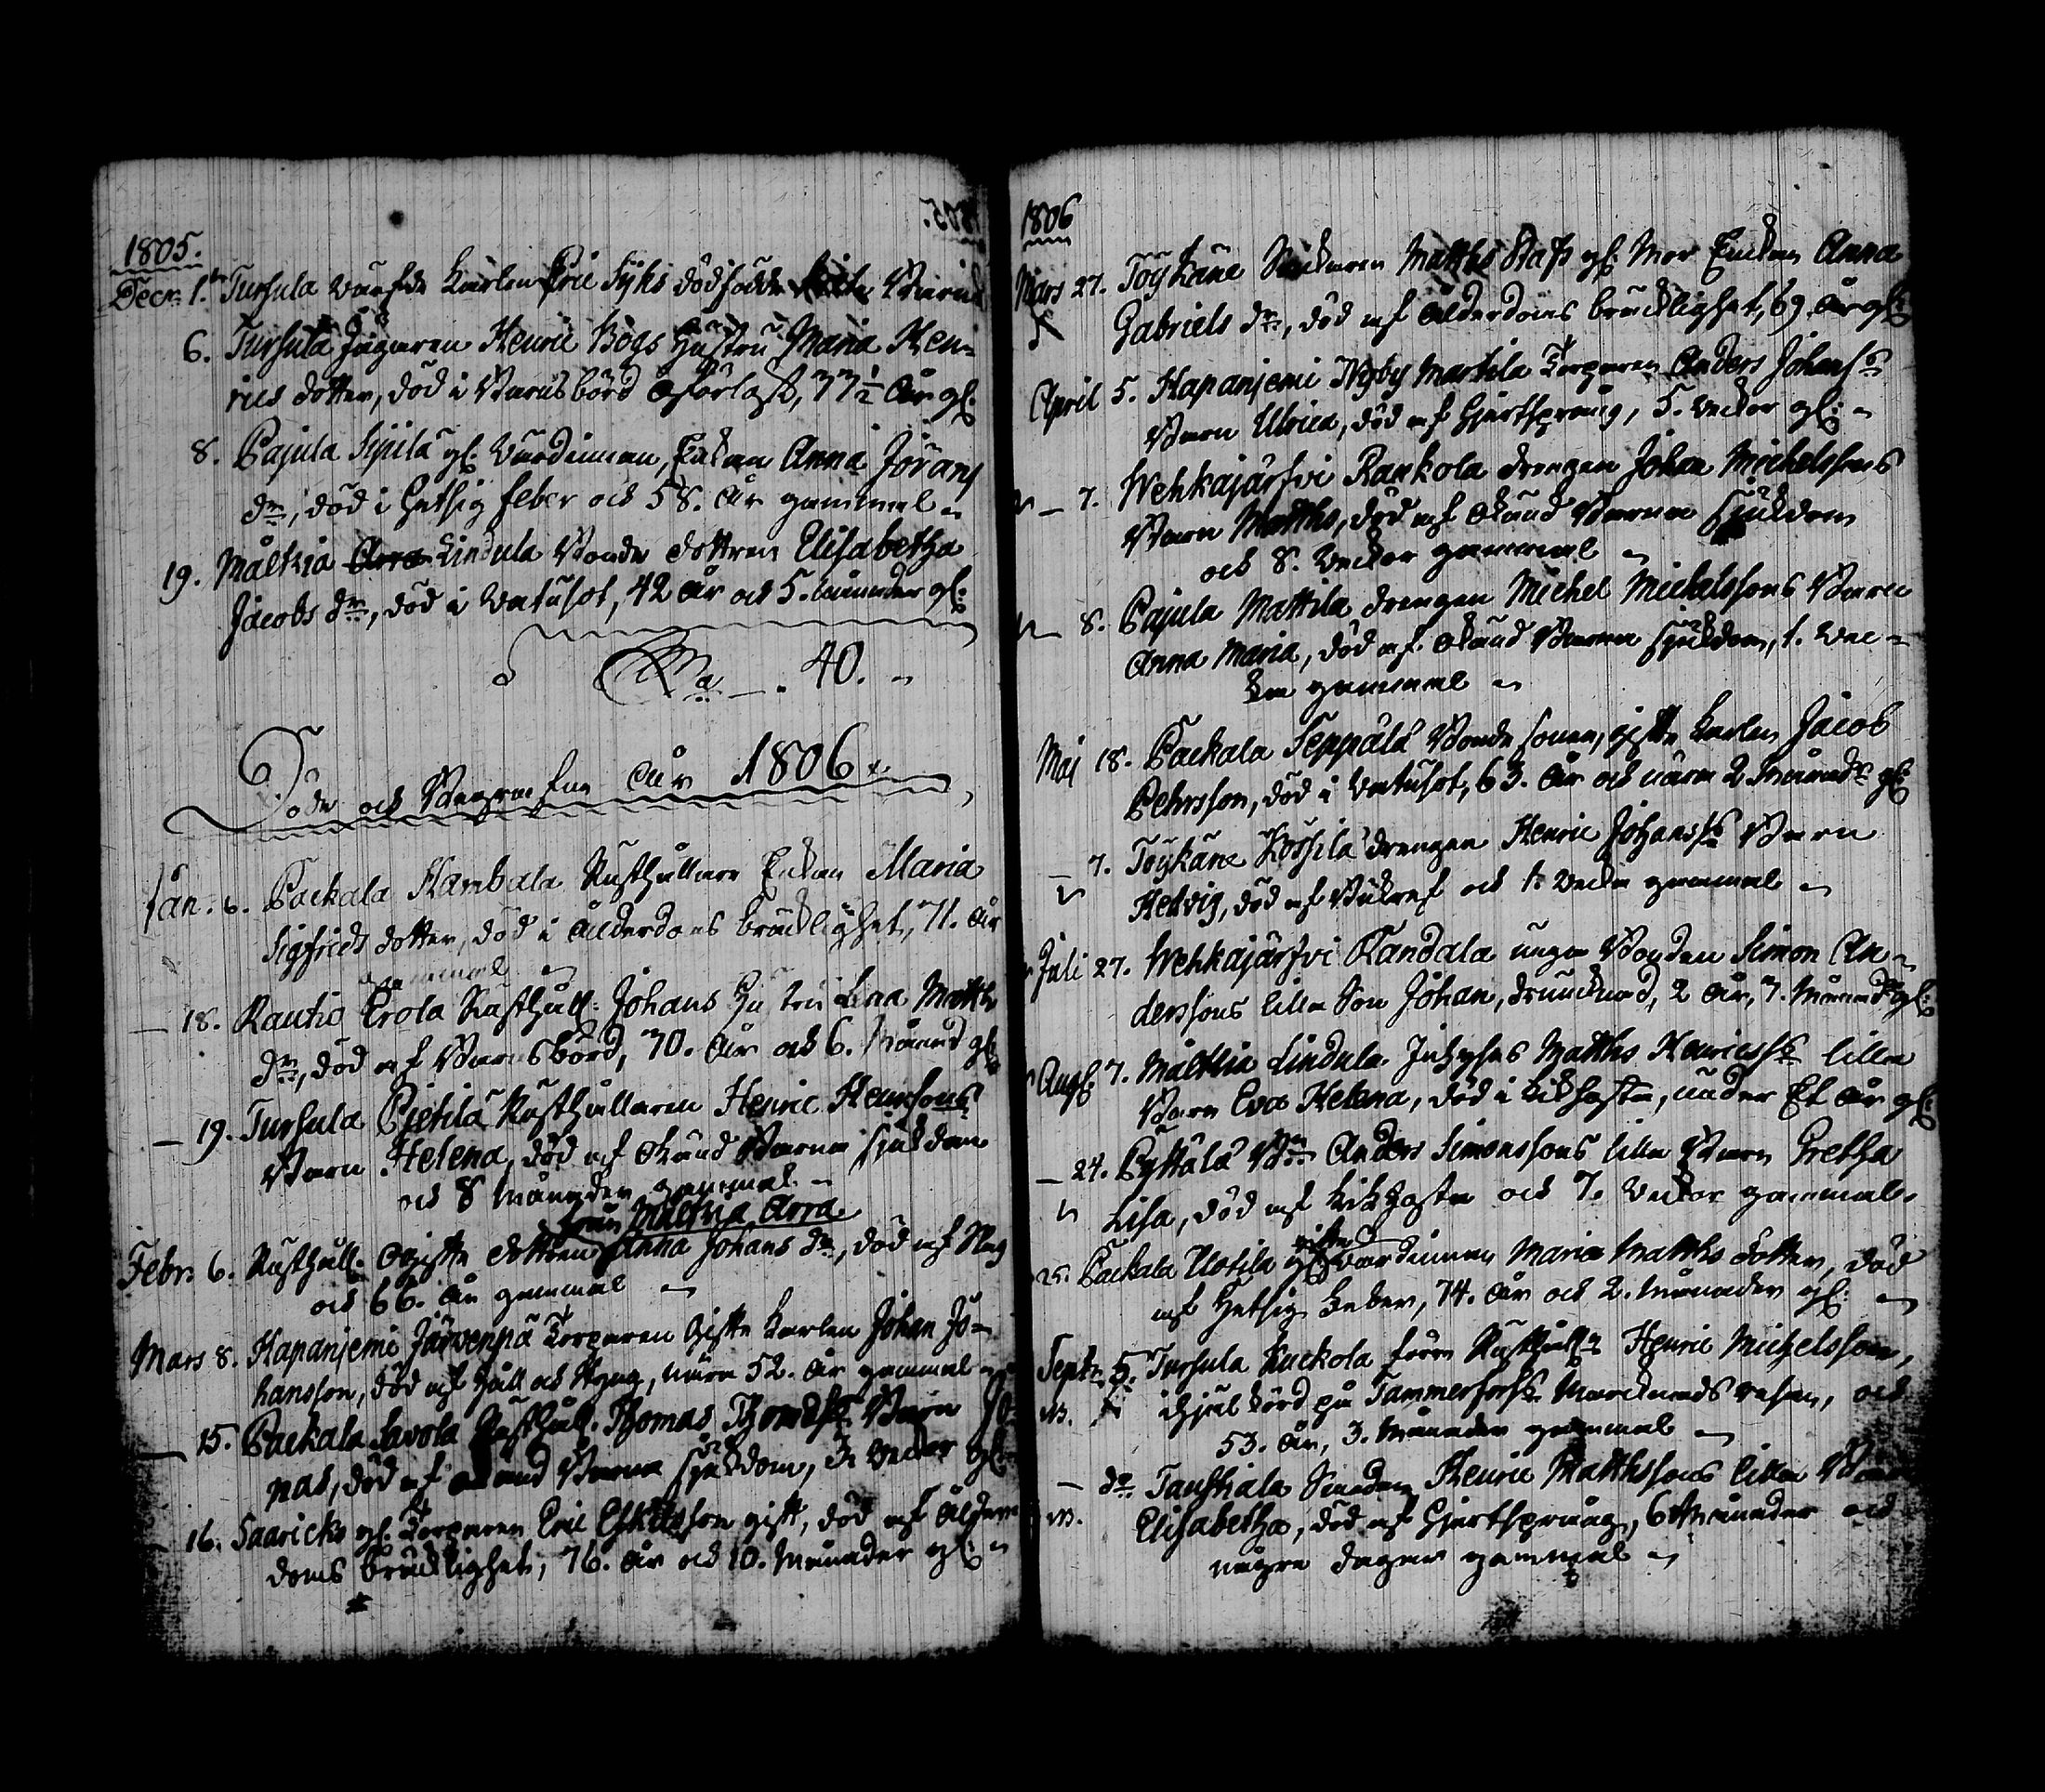 1805.
Decr. 1. Tursula värfde karlen Eric Fyhs dödfödde Barn
6. Tursula Jägaren Henric Bogs Hustru Maria Hen-
rics dotter, död i Barnsbörd oförlöst, 37½ år gl.
8. Pajula Sipilä gl. Värdinnan, Enkan Anna Jörans
dr, död i hetsig feber och 58. år gammal
19. Mälkiä Lindula Bonde dottren Elisabetha
Jacobs dr, död i vatusot, 42 år och 5. månader gl:
Sa _ . 40.
Döde och Begrafne år 1806.
Jan. 6. Packala Kambala Rusthållare Enkan Maria
Sigfrids dotter, död i ålderdoms bräcklighet, 71. år
gammal
_ 18. Rautio Erola Rusthåll. Johans Hustru Lisa Matths
dr, död af Barnsbörd, 30. år och 6. Månad gl
_ 19. Tursula Pietilä Rusthållaren Henric Henrssons
Barn Helena, död af okänd Barna sjukdom
och 8 månader gammal.
från Mälkiä Arra
Febr. 6. Rusthåll. ogifta dottren Anna Johans dr, död af Slag
och 66. år gammal
Mars 8. Kapanjemi Järvenpä Torparen Gifte karlen Johan Jo-
hansson, död af håll och styng, nära 52. år gammal
_ 15. Packala Savola Rusthåll. Thomas Thomæss. Barn Jo-
nas, död af okänd Barna sjukdom, 3. veckor gl.
_ 16. Saaricks gl. Torparen Eric Eskelsson gift, död af ålder-
doms bräcklighet, 76. år och 10. Månader gl:
1806
Mars 27. Töykänä Smeden Matths Stafs gl. Mor Enkan Anna
Gabriels dr, död af ålderdoms bräcklighet, 69. år gl:
April 5. Kapanjemi Nyby Martila Torparen Anders Johanss.
Barn Ulrica, död af Hjertsprång, 5. veckor gl:
_ 7. Wehkajärfvi Rankola drengen Johan Michelssons
Barn Matths, död af okänd Barna sjukdom
och 8. veckor gammal
_ 8. Pajula Mattila drengen Michel Michelssons Barn
Anna Maria, död af okänd Barna sjukdom, 1. vec-
ka gammal
Maj 18. Packala Seppälä Bonde sonen, gifte karlen Jacob
Pehrsson, död i vatusot, 63. år och nära 2 Månadr gl
_ 7. Töykänä Kossila drengen Henric Johanss. Barn
Hedvig, död af Bukref och 1. vecka gammal
Juli 27. Wehkajärfvi Kandala unga Bonden Simon An-
derssons lilla Son Johan, drunknad, 2 år, 7. Månadr gl:
Aug. 7. Mälkiä Lindula Inhyses Matths Henricss. lilla
Barn Eva Helena, död i kikhosta, under Et år gl:
_ 24. Pyttälä Bn Anders Simonssons lilla Barn Gretha
Lisa, död af kikhosta och 7. veckor gammal.
25. Packala Uotila gifta värdinnan Maria Matths dotter, död
af hetsig feber, 74. år och 2. Månader gl:
Septr. 5. Tursula Kuckola förra Rusthålln Henric Michelsson,
ihjälkörd på Tammerforss. Marcknads resan, och
53. år, 3. Månader gammal
_ do. Taushala Smeden Henric Matthssons lilla Barn
Elisabetha, död af Hjertsprång, 6 Månader och
några dagar gammal